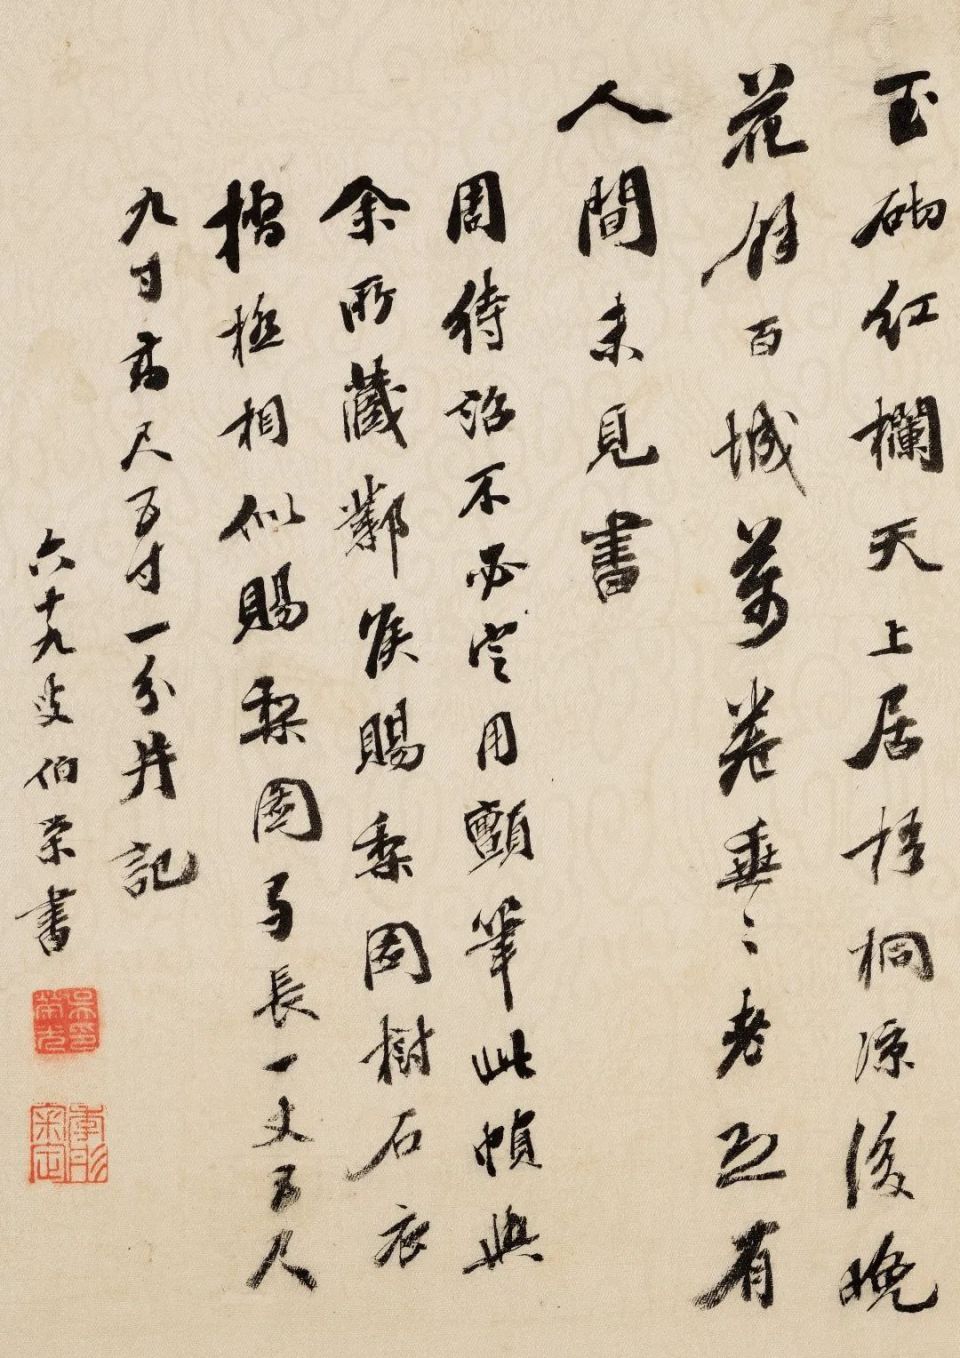 玉砌紅欄天上居梧桐涼後晚
花餘百城萬卷垂〻老還有
人間未見書
周待詔不必定用顫筆此幀與
余所藏鄴侯賜棃圖樹石衣
褶極相似賜棃圖子長一丈五尺
九寸高尺五寸一分并記
六十九叟伯榮書
吳印榮光